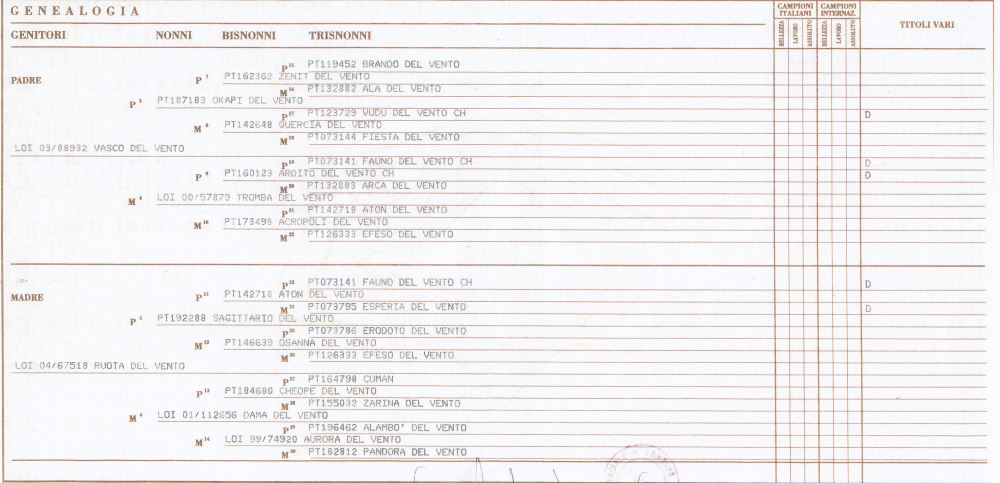 GENEALOGIA
CAMPIONI ITALIANI CAMPIONI INTERNAZ. TITOLI VARI
BELLEZZA LAVORO ASSOLUTO BELLEZZA LAVORO ASSOLUTO
GENITORI NONNI BISNONNI TRISNONNI
P 15 PT119452 BRANDO DEL VENTO
P 7 PT162362 ZENIT DEL VENTO
PADRE
M 16 PT132882 ALA DEL VENTO
P 3 PT187183 OKAPI DEL VENTO
P 17 PT123729 VUDU DEL VENTO CH D
M 8 PT142648 QUERCIA DEL VENTO
M 18 PT073144 FIESTA DEL VENTO
LOI 03/88932 VASCO DEL VENTO
P 19 PT073141 FAUNO DEL VENTO CH D
P 9 PT160123 ARDITO DEL VENTO CH D
M 20 PT132883 ARCA DEL VENTO
M 4 LOI 00/57879 TROMBA DEL VENTO
P 21 PT142718 ATON DEL VENTO
M 10 PT173498 ACROPOLI DEL VENTO
M 22 PT126333 EFESO DEL VENTO
P 23 PT073141 FAUNO DEL VENTO CH D
P 11 PT142718 ATON DEL VENTO
MADRE
M 24 PT073795 ESPERIA DEL VENTO D
P 5 PT192288 SAGITTARIO DEL VENTO
P 25 PT073786 ERODOTO DEL VENTO
M 12 PT146639 OSANNA DEL VENTO
M 26 PT126333 EFESO DEL VENTO
LOI 04/67518 RUOTA DEL VENTO
P 27 PT164798 CUMAN
P 13 PT184680 CHEOPE DEL VENTO
M 28 PT155032 ZARINA DEL VENTO
M 6 LOI 01/112656 DAMA DEL VENTO
P 29 PT196462 ALAMBO' DEL VENTO
M 14 LOI 99/74920 AURORA DEL VENTO
M 30 PT182812 PANDORA DEL VENTO